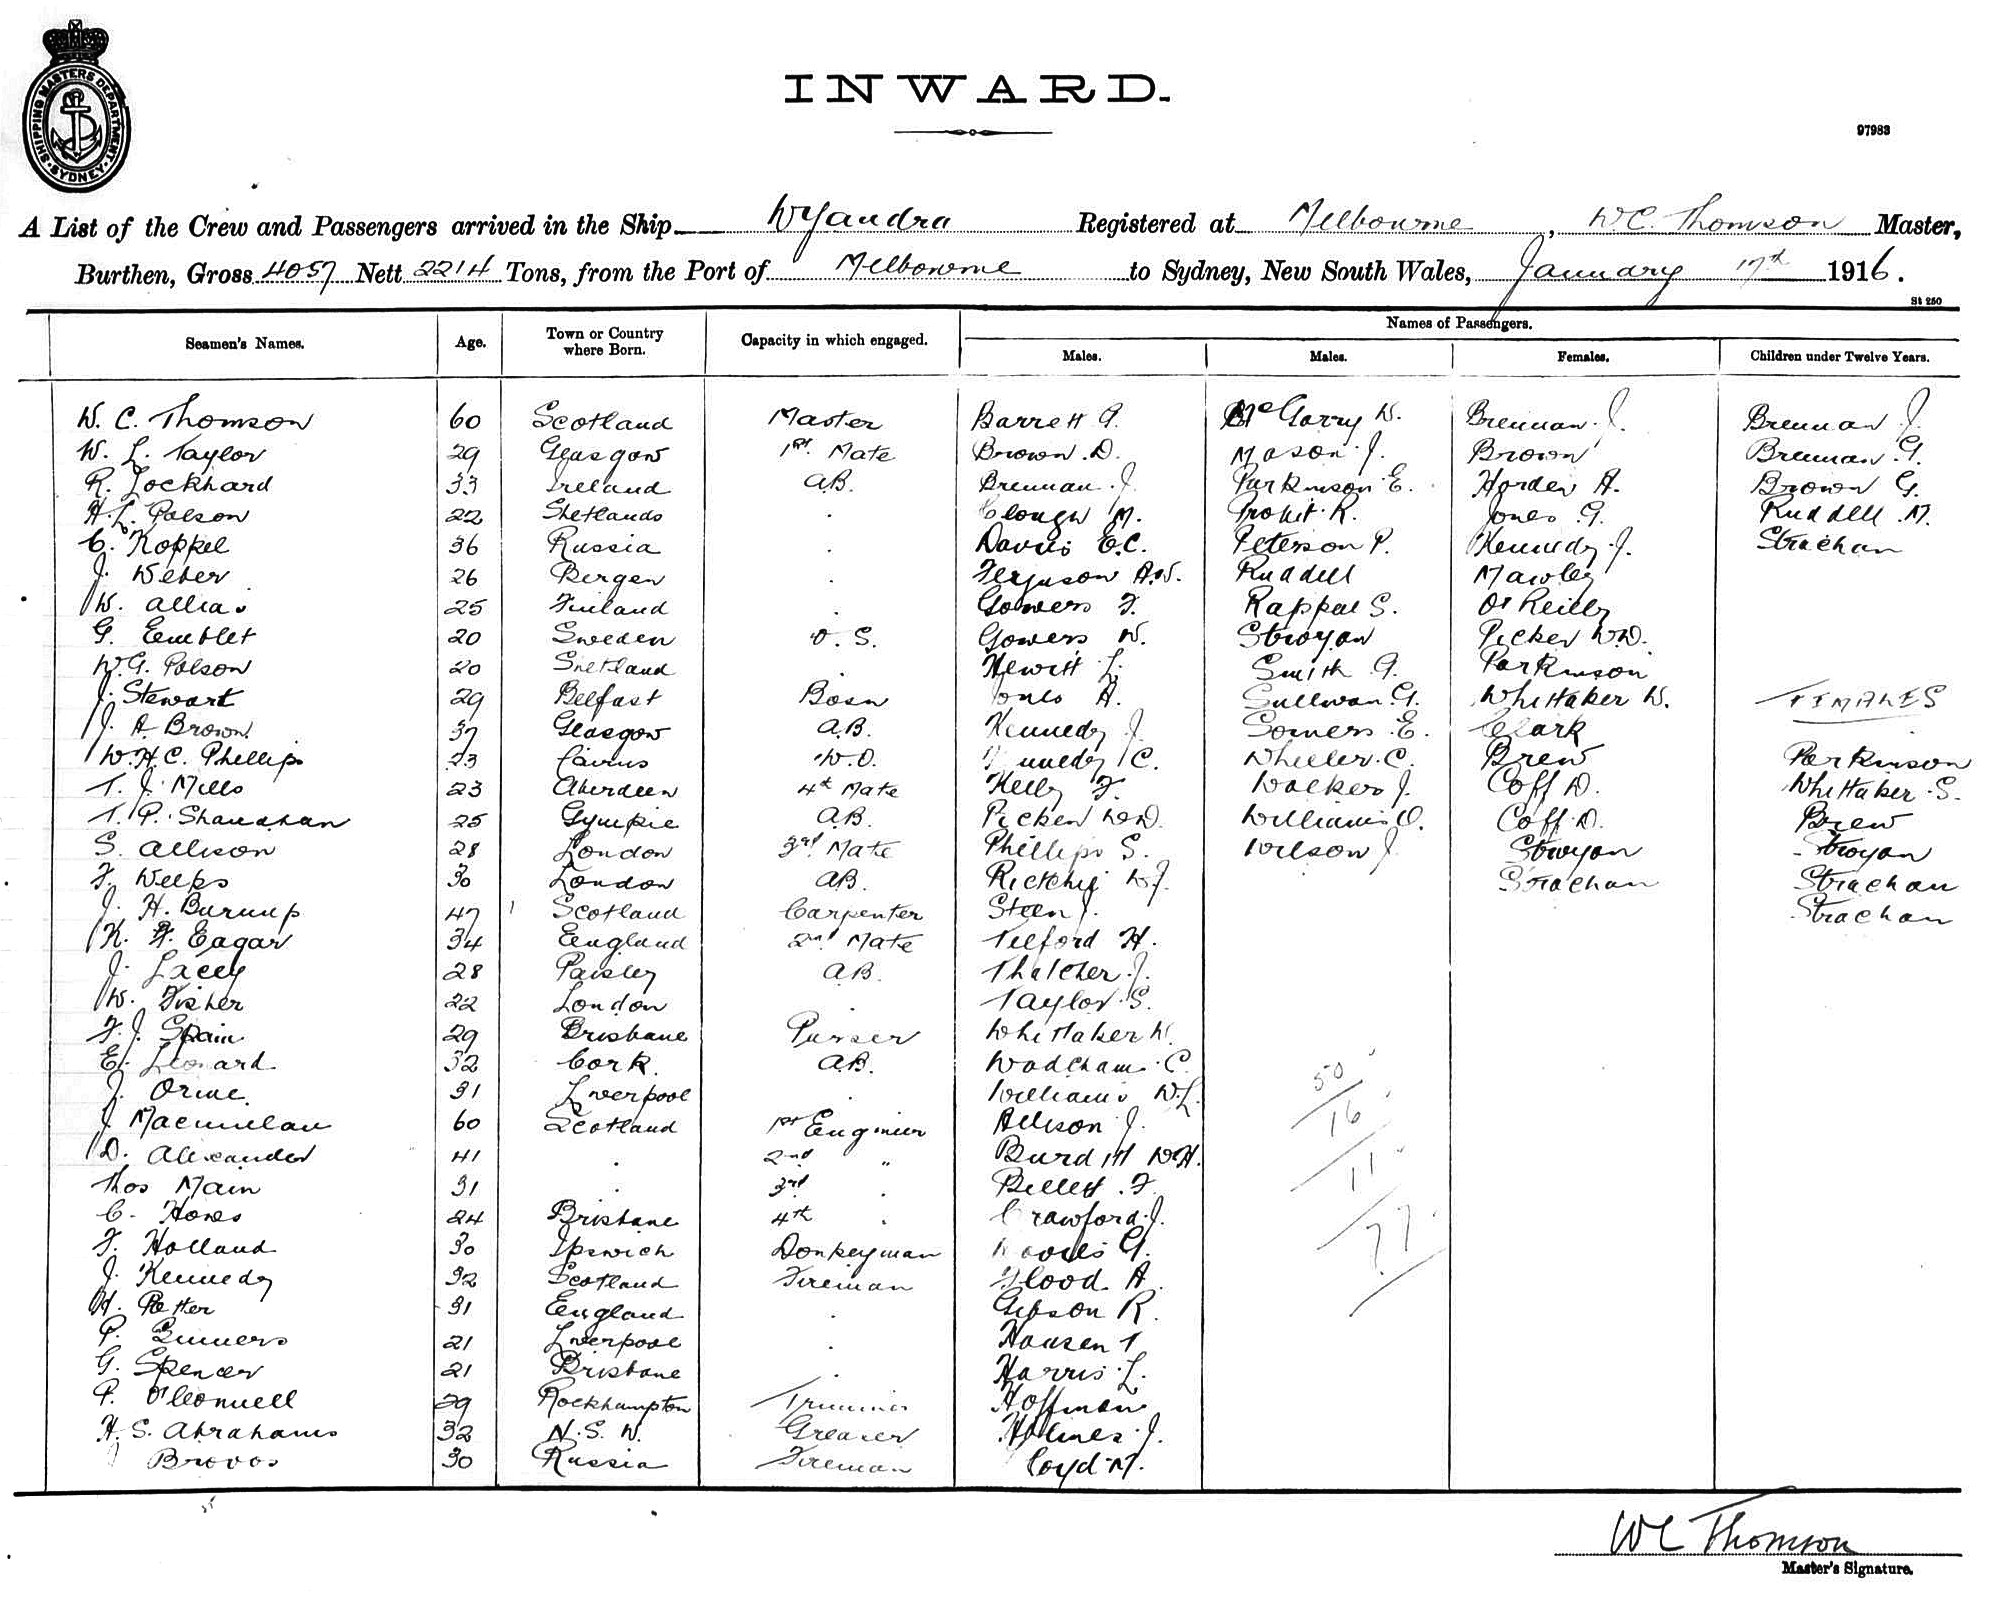 SHIPPING MASTERS DEPARTMENT. SYDNEY
INWARD.
97983
A List of the Crew and Passengers arrived in the Ship Wyandra Registered at Melbourne, W.C. Thomson Master,
Burthen, Gross 4057 Nett 2214 Tons, from the Port of Melbourne to Sydney, New South Wales, January 17th 1916.
St 250
Names of Passengers.
Seamen's Names. Age. Town or Country where Born. Capacity in which engaged. Males. Males. Females. Children under Twelve Years.
W. C. Thomson 60 Scotland Master Barrett G. McGarry W. Brennan J. Brennan J.
W. L. Taylor 29 Glasgow 1st Mate Brown D. Mason J. Brown Brennan G.
R. Lockhard 33 Ireland A.B. Brennan J. Parkinson E. Horder A. Brown G.
H. L. Polson 22 Shetlands . Clough M. R. Jones G. Ruddell M.
C. Koppel 36 Russia . Davis E.C. Peterson P. Kennedy J. Strachan
J. Weber 26 Bergen . Ferguson A.W. Ruddell Mawley
W. 25 Finland . Gowers F. Rappae S. O'Reilly
G. Emblet 20 Sweden O.S. Gowers W. Stroyan Picken W.D.
W.G. Polson 20 Shetland Hewitt L. Smith G. Parkinson
J. Stewart 29 Belfast Bosn Jones A. Sullivan G. Whittaker W. FEMALES
J. A. Brown 37 Glasgow A.B. Kennedy J. Somers E. Clark
W.H.C. Phillips 23 Cairns W.O. Kennedy C. Wheeler C. Brew Parkinson
T. J. Mills 23 Aberdeen 4th Mate Kelly F. Walkers J. Coff D. Whittaker S.
T. P. Shanahan 25 Gympie A.B. Picken W.D. Williams O. Coff D. Brew
S. Allison 28 London 3rd Mate Phillips S. Wilson J. Stroyan Stroyan
F. Weeks 30 London A.B. Ritchie W.J. Strachan Strachan
J. H. Burnup 47 Scotland Carpenter Steen J. Strachan
K. F. Eagar 34 England 2nd Mate Telford H.
J. Lacey 28 Paisley A.B. Thatcher J.
W. Fisher 22 London . Taylor S.
F. J. Spain 29 Brisbane Purser Whittaker W.
E. Leonard 32 Cork. A.B. Wadcham C.
J. Orme. 31 Liverpool . Williams W.L. 50
J. Macmillan 60 Scotland 1st Engineer Allison J. 16
D. Alexander 41 . 2nd " Burditt W.H. 11
Thos Main 31 . 3rd . Billett F.
C. Howes 24 Brisbane 4th . Crawford J. 77
F. Holland 30 Ipswich Donkeyman Davis G.
J. Kennedy 32 Scotland Fireman Flood A.
H. Potter 31 England . Gibson R.
P. Gunners 21 Liverpool . Hansen T
G. Spencer 21 Brisbane . Harris L.
P. O'Connell 39 Rockhampton Trimmer Hoffman
H. S. Abrahams 32 N.S.W. Greaser Holmes J.
J Brovos 30 Russia Fireman Loyd M.
WC Thomson
Master's Signature.